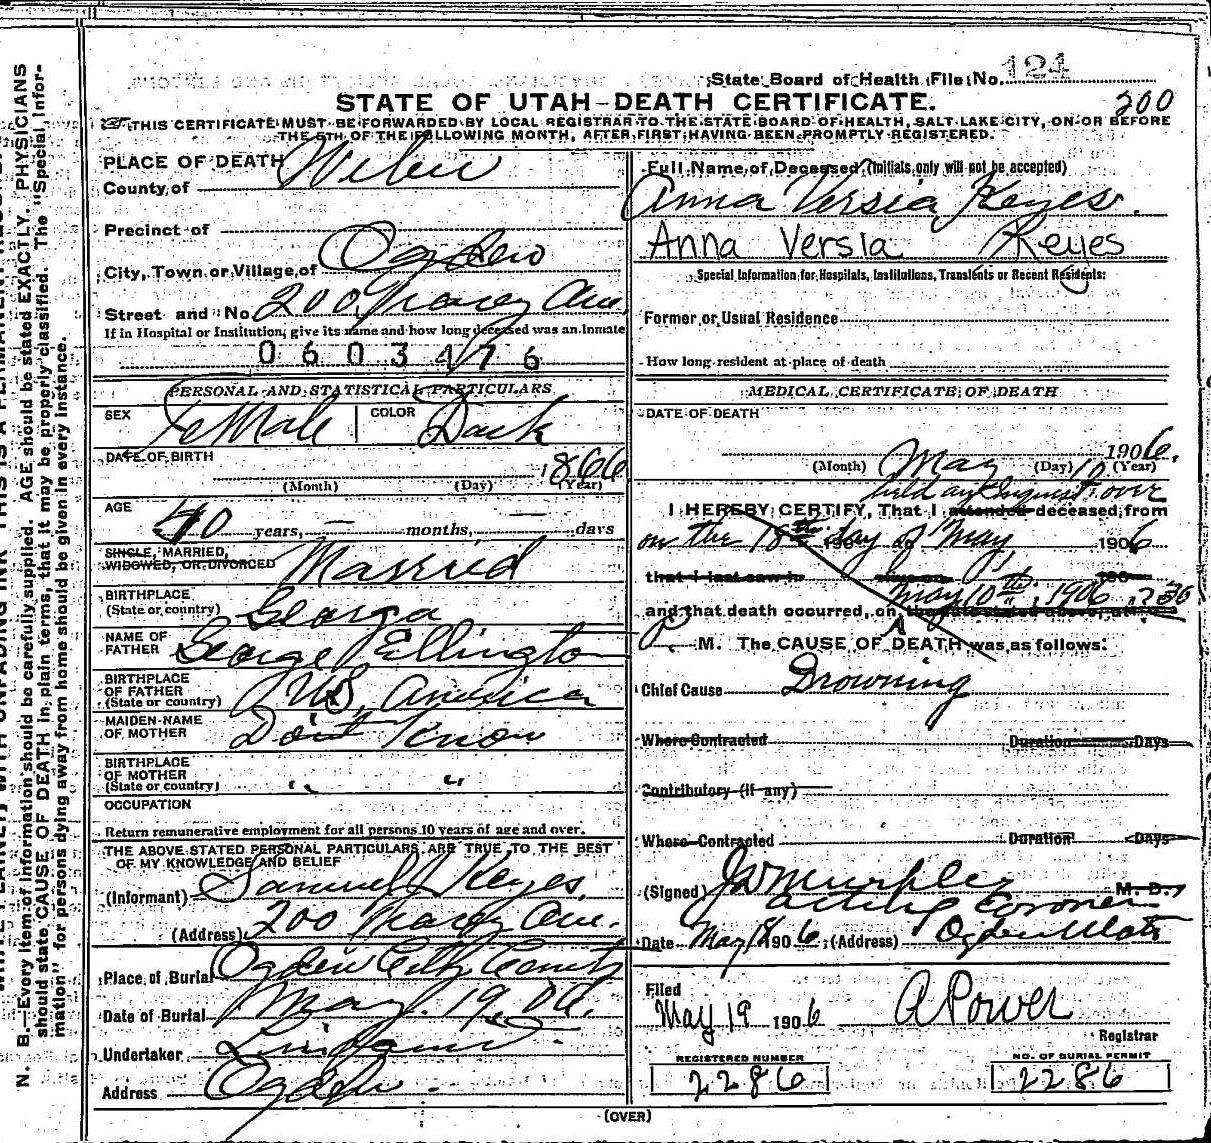 State Board of Health File No. 124
STATE OF UTAH—DEATH CERTIFICATE.
200
THIS CERTIFICATE MUST BE FORWARDED BY LOCAL REGISTRAR TO THE STATE BOARD OF HEALTH, SALT LAKE CITY, ON OR BEFORE
THE 5TH OF THE FOLLOWING MONTH, AFTER FIRST HAVING BEEN PROMPTLY REGISTERED.
PLACE OF DEATH
County of Weber
Precinct of
City, Town or Village of Ogden
Street and No. 200 Ave.
If in Hospital or Institution, give its name and how long deceased was an Inmate
0603476
PERSONAL AND STATISTICAL PARTICULARS
SEX Female COLOR Dark
DATE OF BIRTH 1866
(Month) (Day) (Year)
AGE 40 years, — months, — days
SINGLE, MARRIED,
WIDOWED, OR DIVORCED Married
BIRTHPLACE
(State or country) Georga
NAME OF
FATHER George Ellington
BIRTHPLACE
OF FATHER
(State or country) U.S. America
MAIDEN-NAME
OF MOTHER Dont Know
BIRTHPLACE
OF MOTHER
(State or country) " "
OCCUPATION
Return remunerative employment for all persons 10 years of age and over.
THE ABOVE STATED PERSONAL PARTICULARS ARE TRUE TO THE BEST
OF MY KNOWLEDGE AND BELIEF
(Informant) Samuel J Keyes
(Address) 200 Ave.
Place of Burial Ogden City
Date of Burial May 19, 06.
Undertaker
Address Ogden.
Full Name of Deceased (Initials only will not be accepted)
Anna Versia Keyes.
Anna Versia Keyes
Special Information for Hospitals, Institutions, Transients or Recent Residents:
Former or Usual Residence
How long resident at place of death
MEDICAL CERTIFICATE OF DEATH
DATE OF DEATH
May 10 1906.
(Month) (Day) (Year)
held an Inquest over
I HEREBY CERTIFY, That I attended deceased from
on the 18th day of May, 1906
that I last saw h alive on 190
May 10th, 1906
and that death occurred, on the date stated above, at 7:30
P. M. The CAUSE OF DEATH was as follows:
Chief Cause Drowning
Where Contracted Duration Days
Contributory (if any)
Where Contracted Duration Days
(Signed) J W Murphey M. D.
acting Coroner
Date May 18 1906; (Address) Ogden Utah
Filed
May 19 1906 A Power
Registrar
REGISTERED NUMBER
2286
NO. OF BURIAL PERMIT
2286
(OVER)
N. B.—Every item of information should be carefully supplied. AGE should be stated EXACTLY. PHYSICIANS
should state CAUSE OF DEATH in plain terms, that it may be properly classified. The "Special Infor-
mation" for persons dying away from home should be given in every instance.